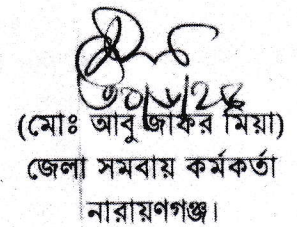 (মোঃ আবু জাকর মিয়া)
জেলা সমবায় কর্মকর্তা
নারায়ণগঞ্জ।